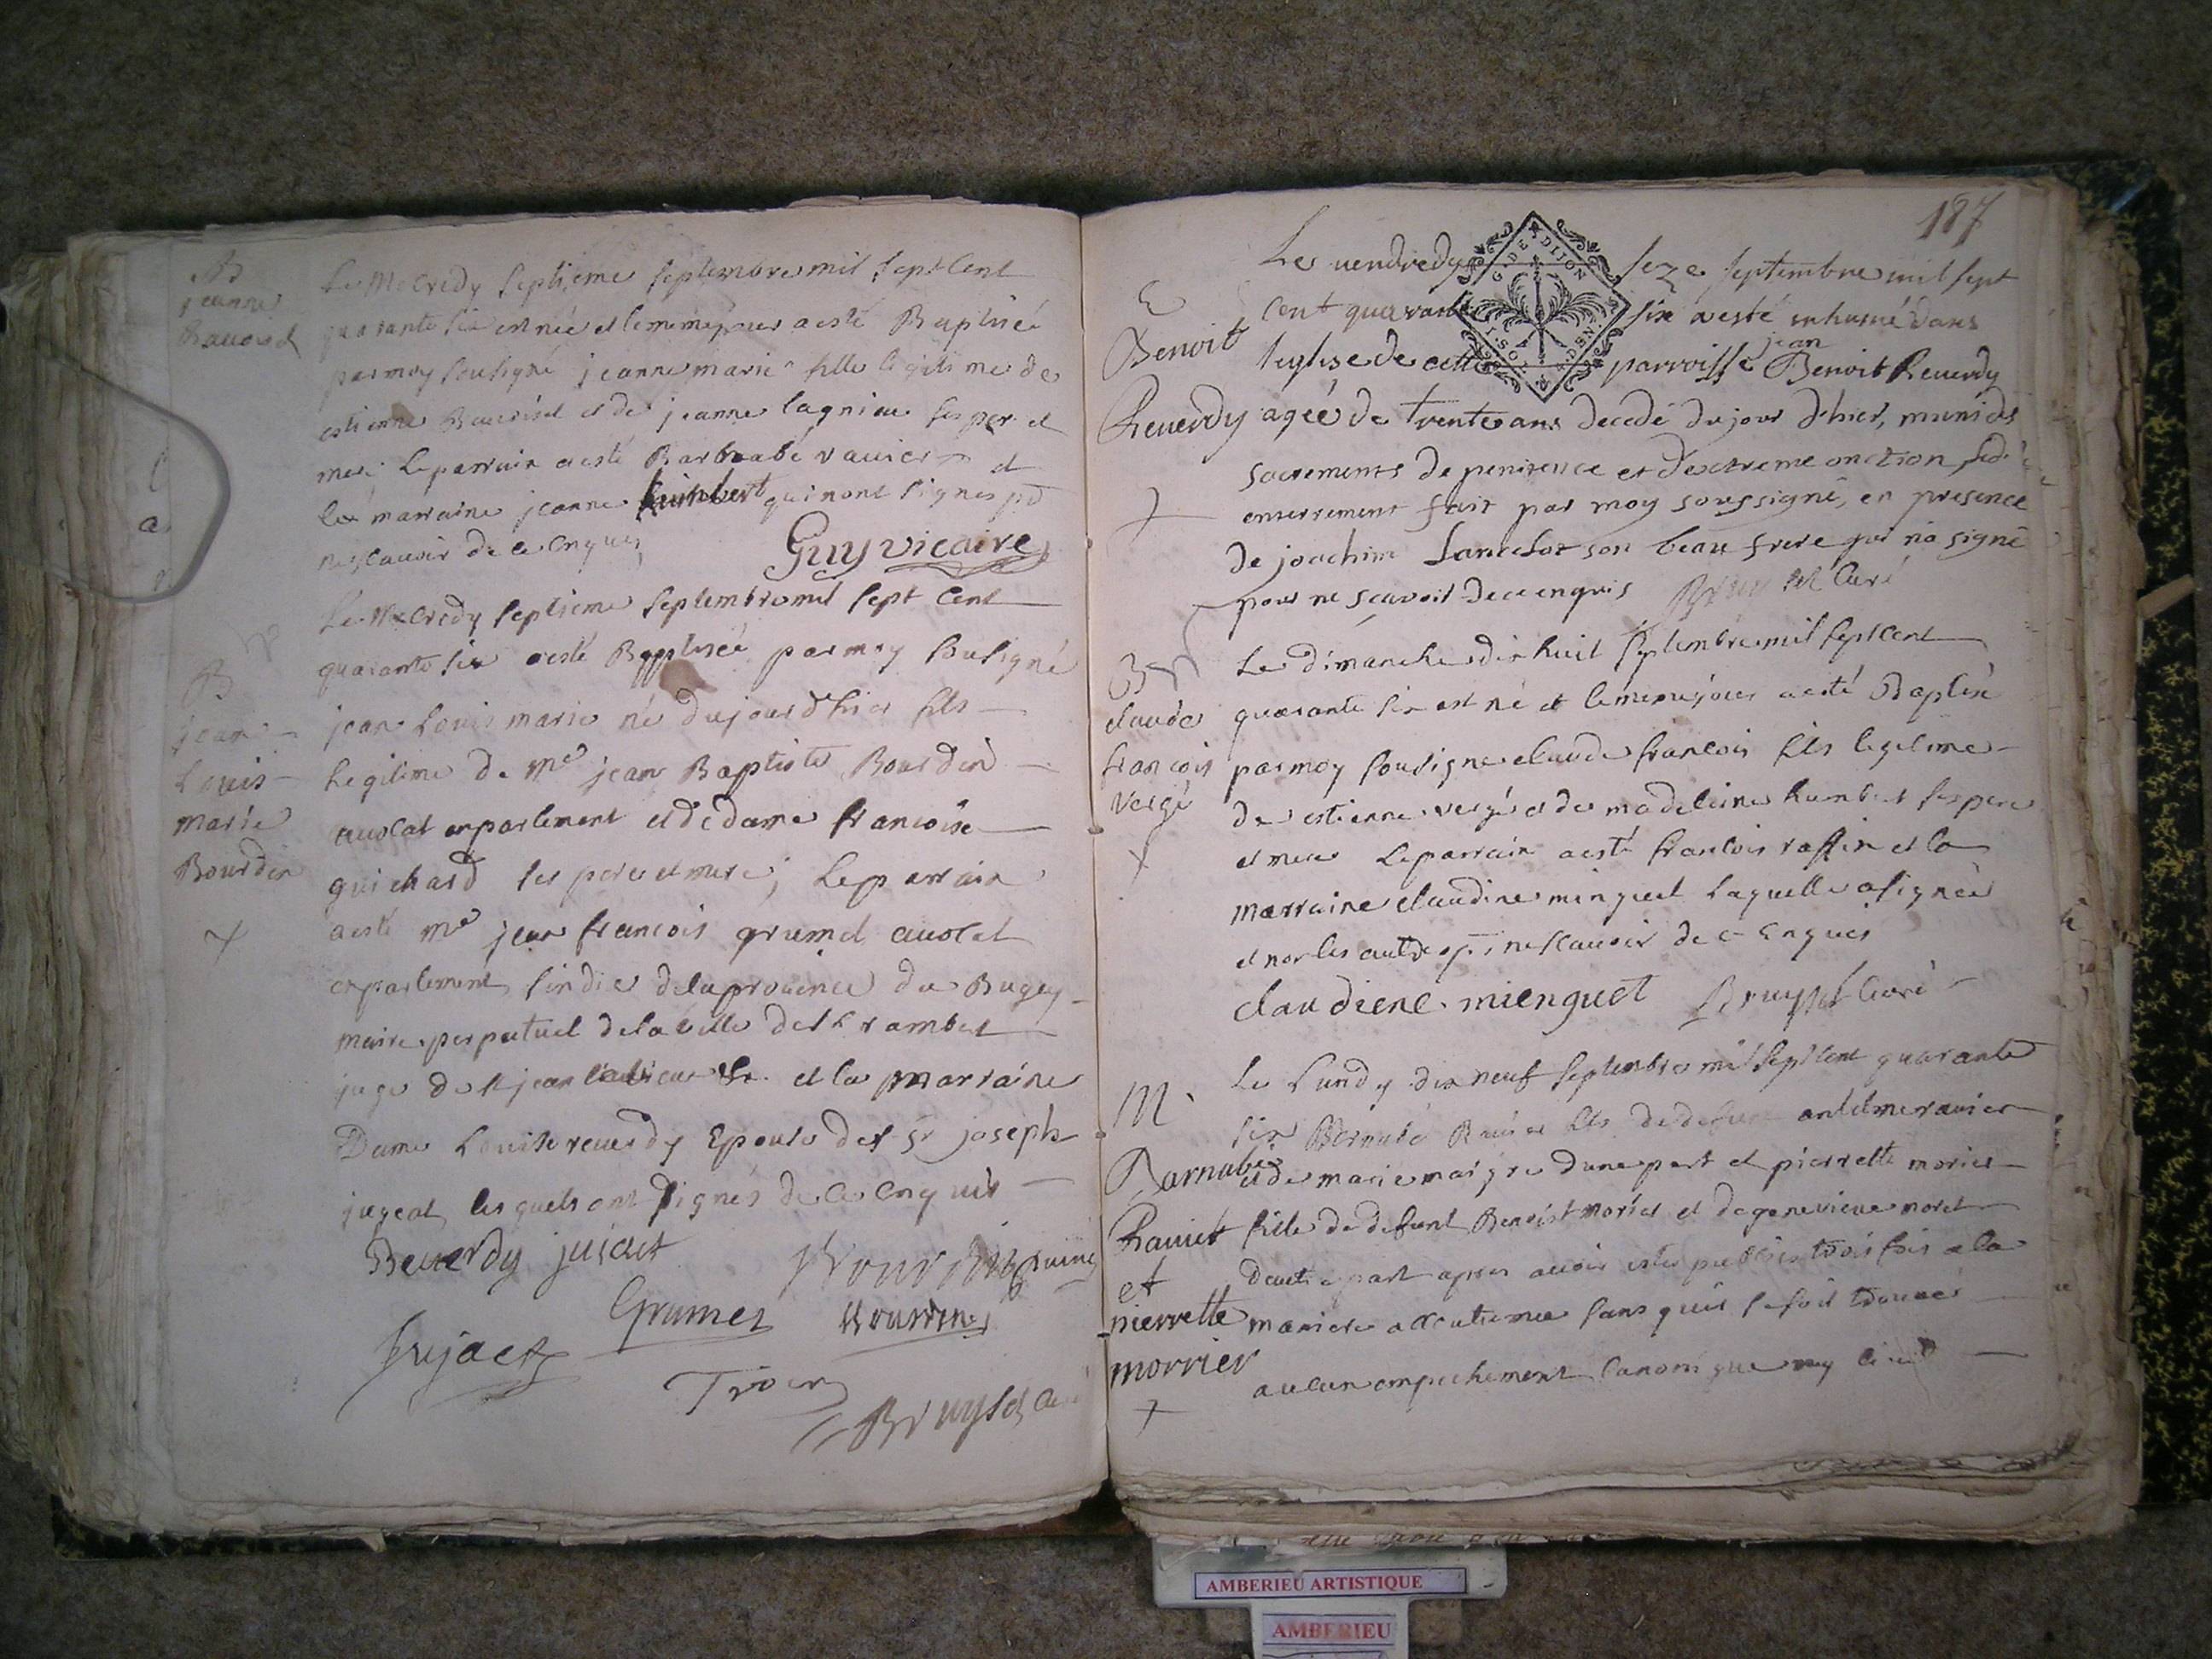 B
jeanne
Le Mecredy septieme septembre mil sept Cent
quarante six est née et le meme jour a esté Baptiseé
par moy sousigné jeanne marie fille legitime de
estienne et de jeanne lagnieu ses per et
mere Le parrain a esté Barbnabé ravier et
les marraine jeanne humbert qui nont signes pr
ne scavoir de ce Enquis
Guy vicaire
Le Mecredy septieme septembre mil sept Cent
quarante six a esté Baptiseé par moy sousigné
B
jean
Louis
marie
Bourdin
jean Louis marie né du jour d'hier fils
legitime de me jean Baptiste Bourdin
avocat en parlement et de dame francoise
guichard ses pere et mere; Le parrain
a esté me jean francois grumet avocat
en parlement sindic de la province du Bugey
maire perpetuel de la ville de st rambert
juge de st jean & et la marraine
Dame Louise reuerdy Epouse de sr joseph
jujeat les quels ont signés de ce Enquis
Reuerdy jujat
Grumet
Bourdin
Jujact
Bruyset Curé
187
Le vendredy seze septembre mil sept
G. DE DIJON
E
Benoit
Reuerdy
cent quarante six a esté inhumé dans
jean
l'eglise de cette parroisse Benoit Reuerdy
ageé de trente ans decedé du jour d'hier, muni des
sacrements de penitence et d'extreme onction, led.
enterrement fait par moy soussigné, en presence
de joachim Lancelot son beau frere qui na signé
pour ne scavoir de ce enquis Bruyset Curé
B
claude
francois
Vergé
Le dimanche dix huit septembre mil sept Cent
quarante six est né et le meme jour a esté Baptisé
par moy sousigne claude francois fils legitime
de estienne vergé et de madeleine humbert ses pere
et mere Le parrain a esté francois raffin et la
marraine claudine minguet laquelle a signeé
et non les autres pr ne scavoir de ce Enquis
claudiene mienguet Bruyset Curé
M.
Barnabé
Raviet
et
pierrette
morrier
Le Lundy dix neuf septembre mil sept Cent quarante
six Barnabé Ravier fils de defunt antelme ravier
et de marie maigre dune part et pierrette morier
fille de defunt Benoist morier et de genevieve moret
dautre part apres avoir estes publies trois fois a la
maniere accoutumee sans quil se soit trouvé
aucun empechement Canonique ny civil
AMBERIEU ARTISTIQUE
AMBERIEU